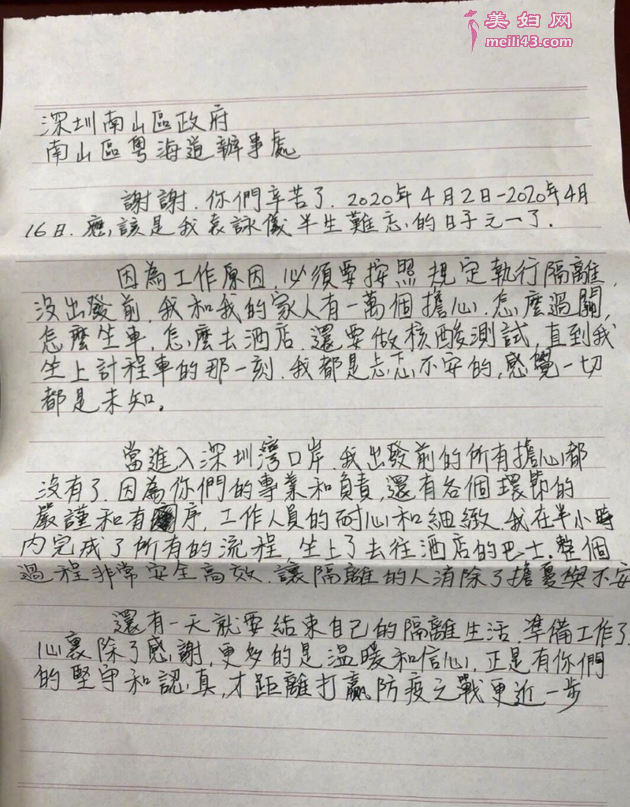 美妇网
meili43.com
深圳南山區政府
南山區粵海道辦事處
謝謝.你們辛苦了.2020年4月2日-2020年4月
16日.應該是我袁詠儀半生難忘的日子之一了.
因為工作原因,必須要按照規定執行隔離,
沒出發前,我和我的家人有一萬個擔心,怎麼過關,
怎麼坐車,怎麼去酒店.還要做核酸測試,直到我
坐上計程車的那一刻.我都是忐忑不安的,感覺一切
都是未知。
當進入深圳灣口岸.我出發前的所有擔心都
沒有了.因為你們的專業和負責,還有各個環節的
嚴謹和有序,工作人員的耐心和細緻.我在半小時
內完成了所有的流程,坐上了去往酒店的巴士.整個
過程非常安全高效.讓隔離的人消除了擔憂與不安
還有一天就要結束自己的隔離生活.準備工作了.
心裏除了感謝,更多的是溫暖和信心.正是有你們
的堅守和認真,才距離打贏防疫之戰更近一步